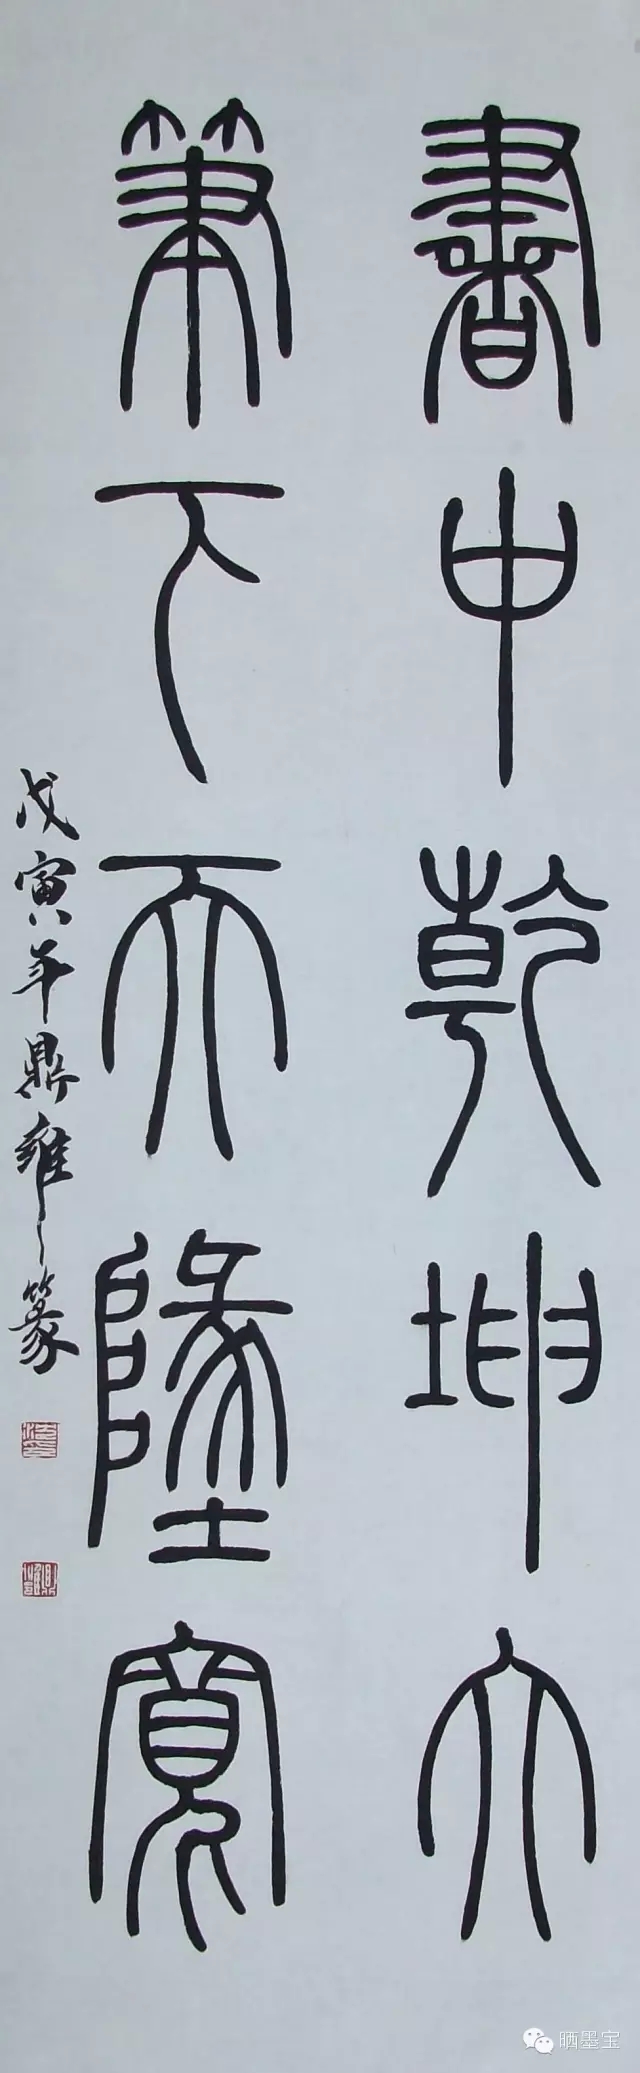 書中乾坤大
筆下天地寬
戊寅年鼎維篆
晒墨宝